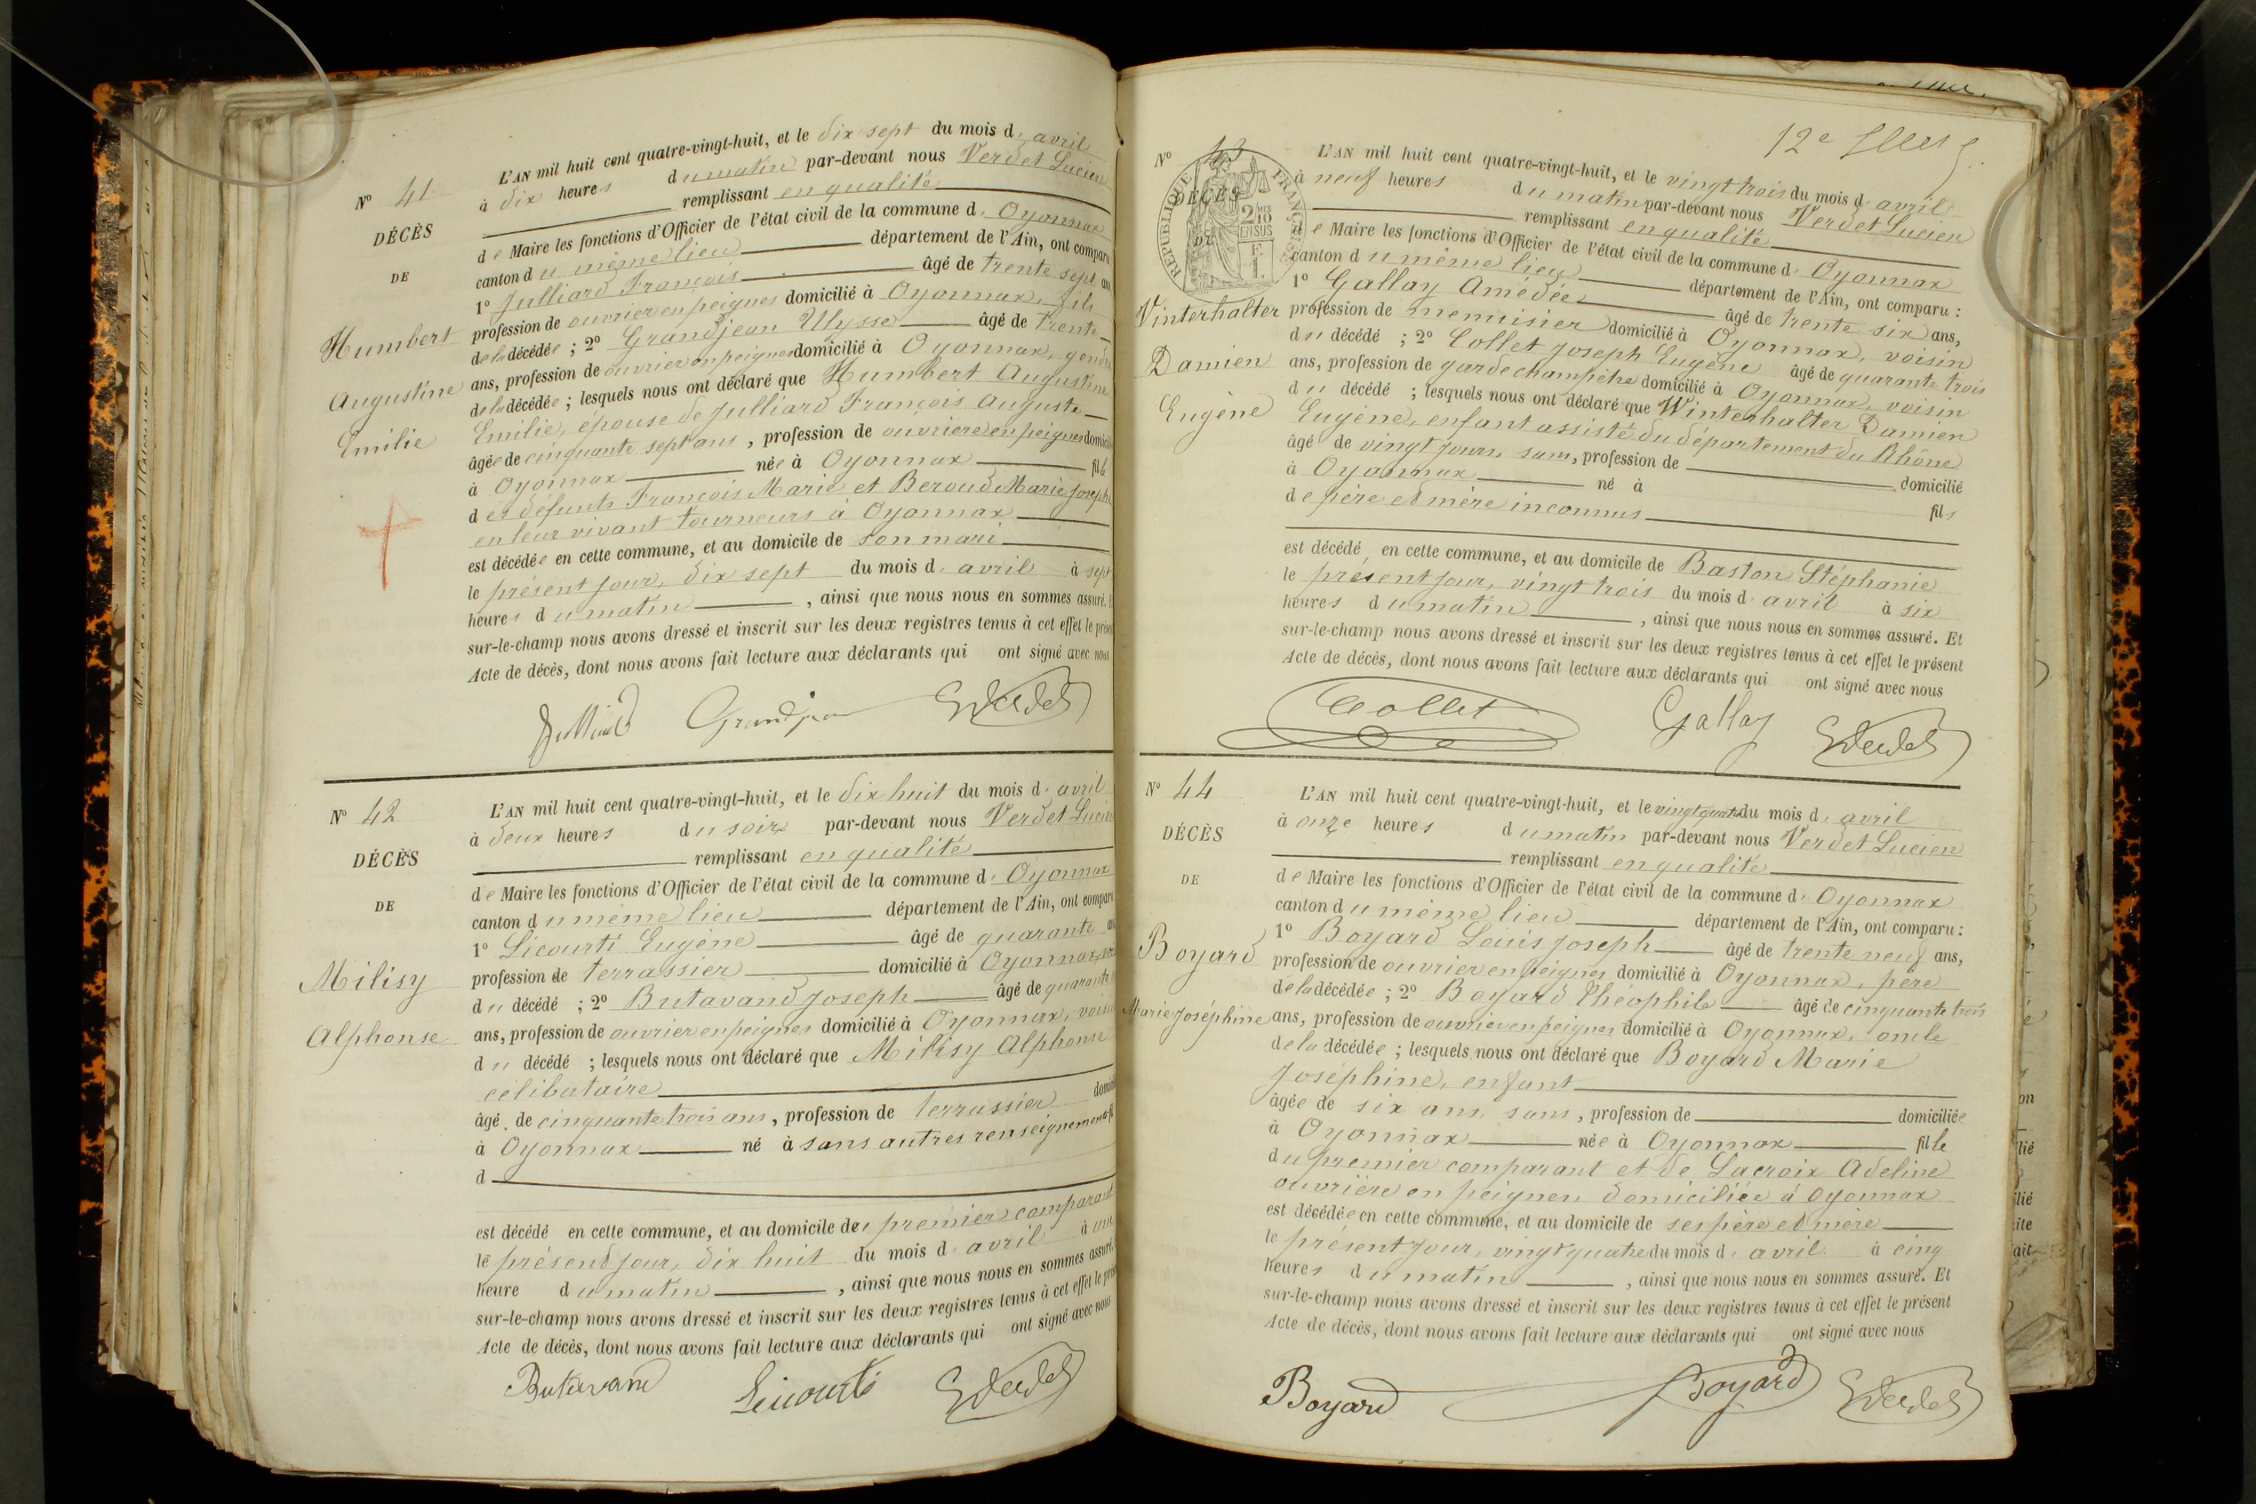 N° 41
DÉCÈS
DE
Humbert
Augustine
Emilie
L'AN mil huit cent quatre-vingt-huit, et le dix sept du mois d'avril
à dix heures du matin par-devant nous Verdet Lucien
remplissant en qualité
de Maire les fonctions d'Officier de l'état civil de la commune d'Oyonnax
canton du même lieu département de l'Ain, ont comparu
1° Julliard François âgé de trente sept ans
profession de ouvrier en peignes domicilié à Oyonnax, fils
de la décédée ; 2° Grandjean Ulysse âgé de trente
ans, profession de ouvrier en peignes domicilié à Oyonnax, gendre
de la décédée ; lesquels nous ont déclaré que Humbert Augustine
Emilie, épouse de Julliard François Auguste
âgée de cinquante sept ans, profession de ouvriere en peignes domicili
à Oyonnax née à Oyonnax fille
des défunts François Marie et Beroud Marie Joseph
en leur vivant tourneurs à Oyonnax
est décédée en cette commune, et au domicile de son mari
le présent jour, dix sept du mois d'avril à sept
heures du matin, ainsi que nous nous en sommes assuré. E
sur-le-champ nous avons dressé et inscrit sur les deux registres tenus à cet effet le présen
Acte de décès, dont nous avons fait lecture aux déclarants qui ont signé avec nous
Julliard Grandjean Verdet
N° 42
DÉCÈS
DE
Milisy
Alphonse
L'AN mil huit cent quatre-vingt-huit, et le dix huit du mois d'avril
à deux heures du soir par-devant nous Verdet Lucien
remplissant en qualité
de Maire les fonctions d'Officier de l'état civil de la commune d'Oyonnax
canton du même lieu département de l'Ain, ont comparu
1° Licourti Eugène âgé de quarante an
profession de terrassier domicilié à Oyonnax,
du décédé ; 2° Butavand Joseph âgé de quarante
ans, profession de ouvrier en peignes domicilié à Oyonnax, voisin
du décédé ; lesquels nous ont déclaré que Milisy Alphonse
célibataire
âgé de cinquante trois ans, profession de terrassier domici
à Oyonnax né à sans autres renseignements fil
d
est décédé en cette commune, et au domicile de premier comparant
le présent jour, dix huit du mois d'avril à une
heure du matin, ainsi que nous nous en sommes assuré.
sur-le-champ nous avons dressé et inscrit sur les deux registres tenus à cet effet le prés
Acte de décès, dont nous avons fait lecture aux déclarants qui ont signé avec nous
Butavand Licourti Verdet
12e
N° 43
DÉCÈS
DE
RÉPUBLIQUE FRANÇAISE
2/10 EN SUS
Vinterhalter
Damien
Eugène
L'AN mil huit cent quatre-vingt-huit, et le vingt trois du mois d'avril
à neuf heures du matin par-devant nous Verdet Lucien
remplissant en qualité
de Maire les fonctions d'Officier de l'état civil de la commune d'Oyonnax
canton du même lieu département de l'Ain, ont comparu :
1° Gallay Amédée âgé de trente six ans,
profession de menuisier domicilié à Oyonnax, voisin
du décédé ; 2° Collet Joseph Eugène âgé de quarante trois
ans, profession de garde champêtre domicilié à Oyonnax, voisin
du décédé ; lesquels nous ont déclaré que Winterhalter Damien
Eugène, enfant assisté du département du Rhône
âgé de vingt jours, sans, profession de domicilié
à Oyonnax né à fils
de père et mère inconnus
est décédé, en cette commune, et au domicile de Baston Stéphanie
le présent jour, vingt trois du mois d'avril à six
heures du matin, ainsi que nous nous en sommes assuré. Et
sur-le-champ nous avons dressé et inscrit sur les deux registres tenus à cet effet le présent
Acte de décès, dont nous avons fait lecture aux déclarants qui ont signé avec nous
Collet Gallay Verdet
N° 44
DÉCÈS
DE
Boyard
Marie Joséphine
L'AN mil huit cent quatre-vingt-huit, et le vingt quatre du mois d'avril
à onze heures du matin par-devant nous Verdet Lucien
remplissant en qualité
de Maire les fonctions d'Officier de l'état civil de la commune d'Oyonnax
canton du même lieu département de l'Ain, ont comparu :
1° Boyard Louis Joseph âgé de trente neuf ans,
profession de ouvrier en peignes domicilié à Oyonnax, père
de la décédée ; 2° Boyard Théophile âgé de cinquante trois
ans, profession de ouvrier en peignes domicilié à Oyonnax, oncle
de la décédée ; lesquels nous ont déclaré que Boyard Marie
Joséphine, enfant
âgée de six ans, sans, profession de domiciliée
à Oyonnax née à Oyonnax fille
du premier comparant et de Lacroix Adeline
ouvrière en peignes domiciliée à Oyonnax
est décédée en cette commune, et au domicile de ses père et mère
le présent jour, vingt quatre du mois d'avril à cinq
heures du matin, ainsi que nous nous en sommes assuré. Et
sur-le-champ nous avons dressé et inscrit sur les deux registres tenus à cet effet le présent
Acte de décès, dont nous avons fait lecture aux déclarants qui ont signé avec nous
Boyard Boyard Verdet